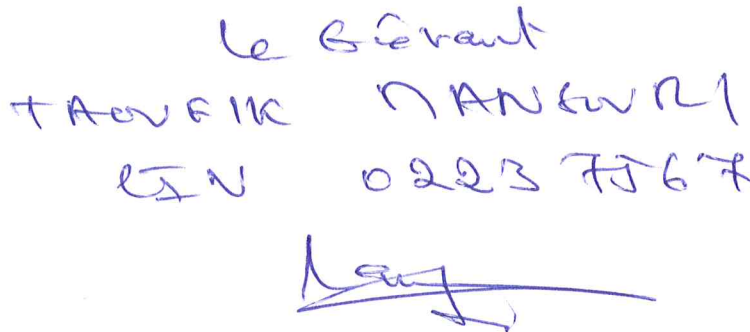 Le Gérant
TAOUFIK MANSOURI
CIN 02237567